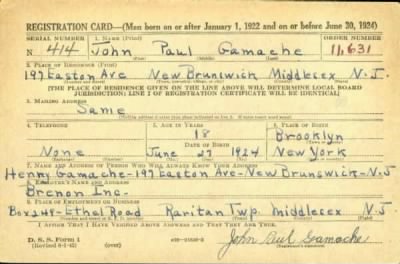 REGISTRATION CARD—(Men born on or after January 1, 1922 and on or before June 30, 1924)
SERIAL NUMBER 1. NAME (Print) ORDER NUMBER
N 414 John Paul Gamache 11,631
(First) (Middle) (Last)
2. PLACE OF RESIDENCE (Print)
197 Easton Ave New Brunswick Middlesex N.J.
(Number and street) (Town, township, village, or city) (County) (State)
[THE PLACE OF RESIDENCE GIVEN ON THE LINE ABOVE WILL DETERMINE LOCAL BOARD
JURISDICTION; LINE 2 OF REGISTRATION CERTIFICATE WILL BE IDENTICAL]
3. MAILING ADDRESS
Same
[Mailing address if other than place indicated on line 2. If same insert word same]
4. TELEPHONE 5. AGE IN YEARS 6. PLACE OF BIRTH
18 Brooklyn
DATE OF BIRTH
None June 27 1924 New York
7. NAME AND ADDRESS OF PERSON WHO WILL ALWAYS KNOW YOUR ADDRESS
Henry Gamache-197 Easton Ave-New Brunswick-N.J
8. EMPLOYER'S NAME AND ADDRESS
Brenon Inc.
9. PLACE OF EMPLOYMENT OR BUSINESS
Box 249-Ethel Road Raritan Twp. Middlesex N.J
I AFFIRM THAT I HAVE VERIFIED ABOVE ANSWERS AND THAT THEY ARE TRUE.
D. S. S. Form 1
(Revised 6-1-42)
John Paul Gamache